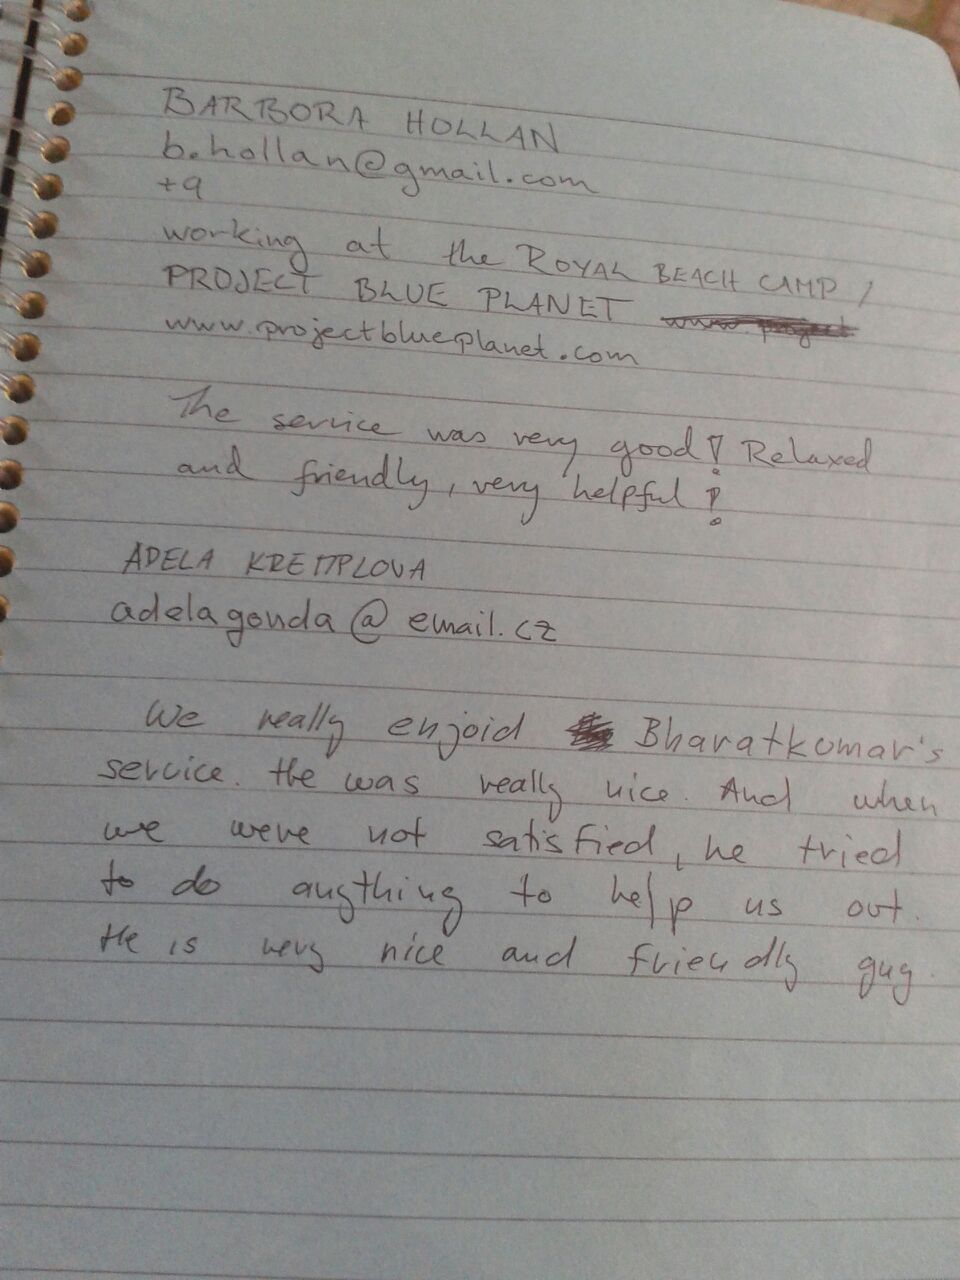 BARBORA HOLLAN
b.hollan@gmail.com
+9
working at the ROYAL BEACH CAMP /
PROJECT BLUE PLANET
www.projectblueplanet.com
The service was very good! Relaxed
and friendly, very helpful!
ADELA
adelagonda@email.cz
We really enjoid Bharatkumar's
service. He was really nice. And when
we were not satisfied, he tried
to do anything to help us out.
He is very nice and friendly guy.